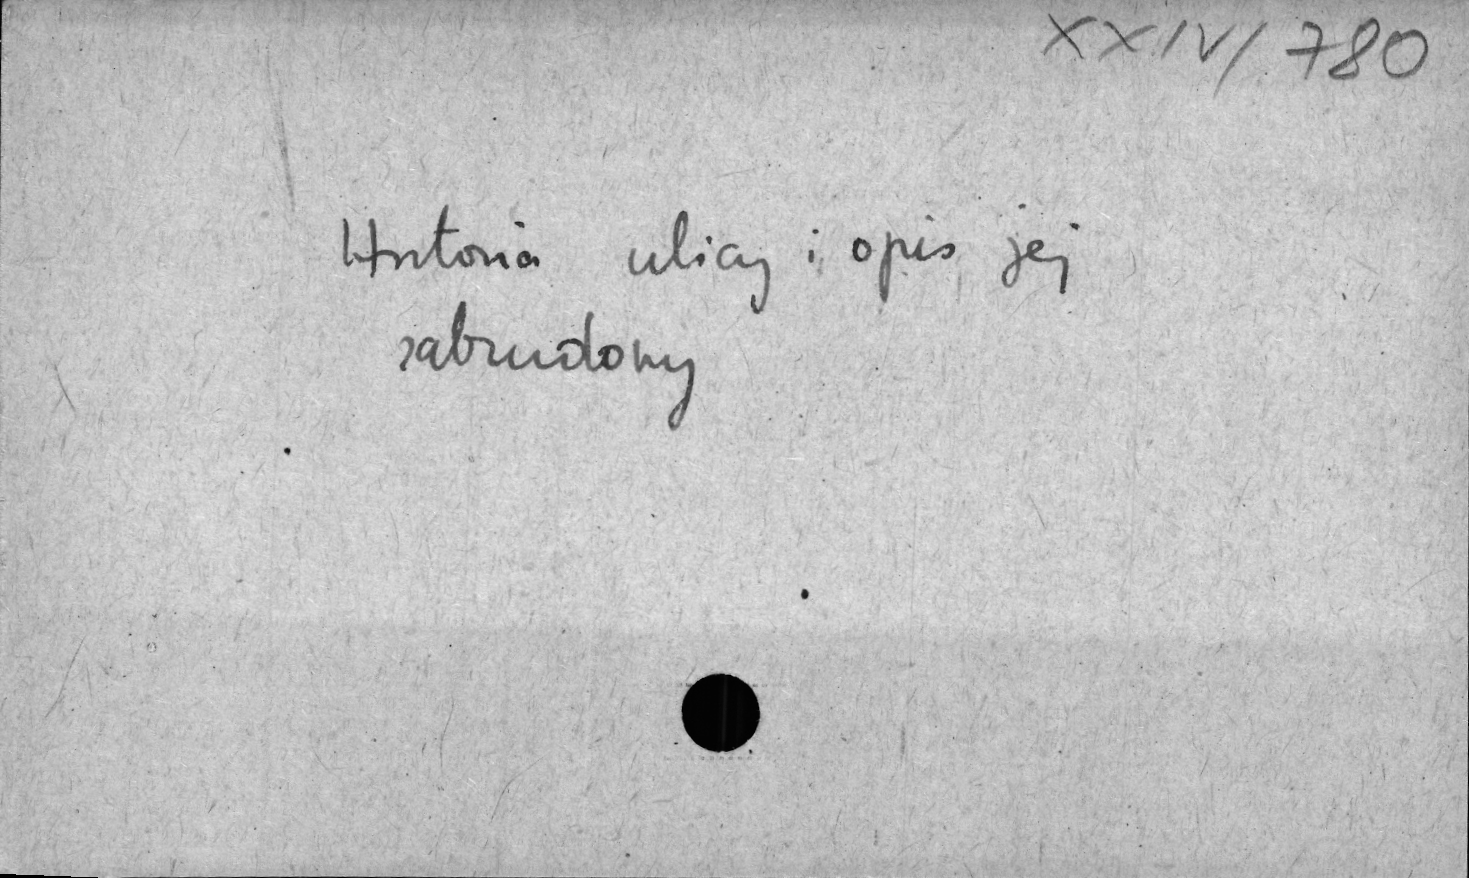 XXIV/780
Historia ulicy i opis jej
zabudowy